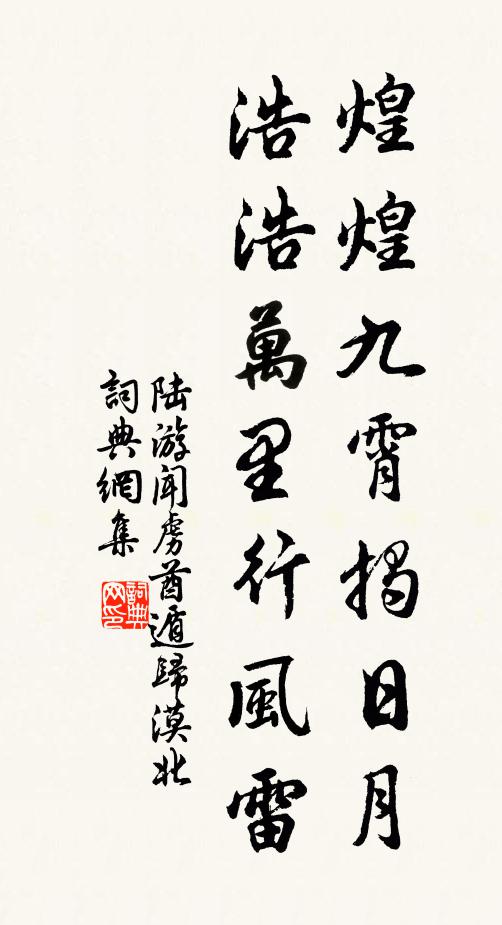 煌煌九霄揭日月
浩浩萬里行風雷
陆游闻虏酋遁歸漠北
詞典網集
詞典网印